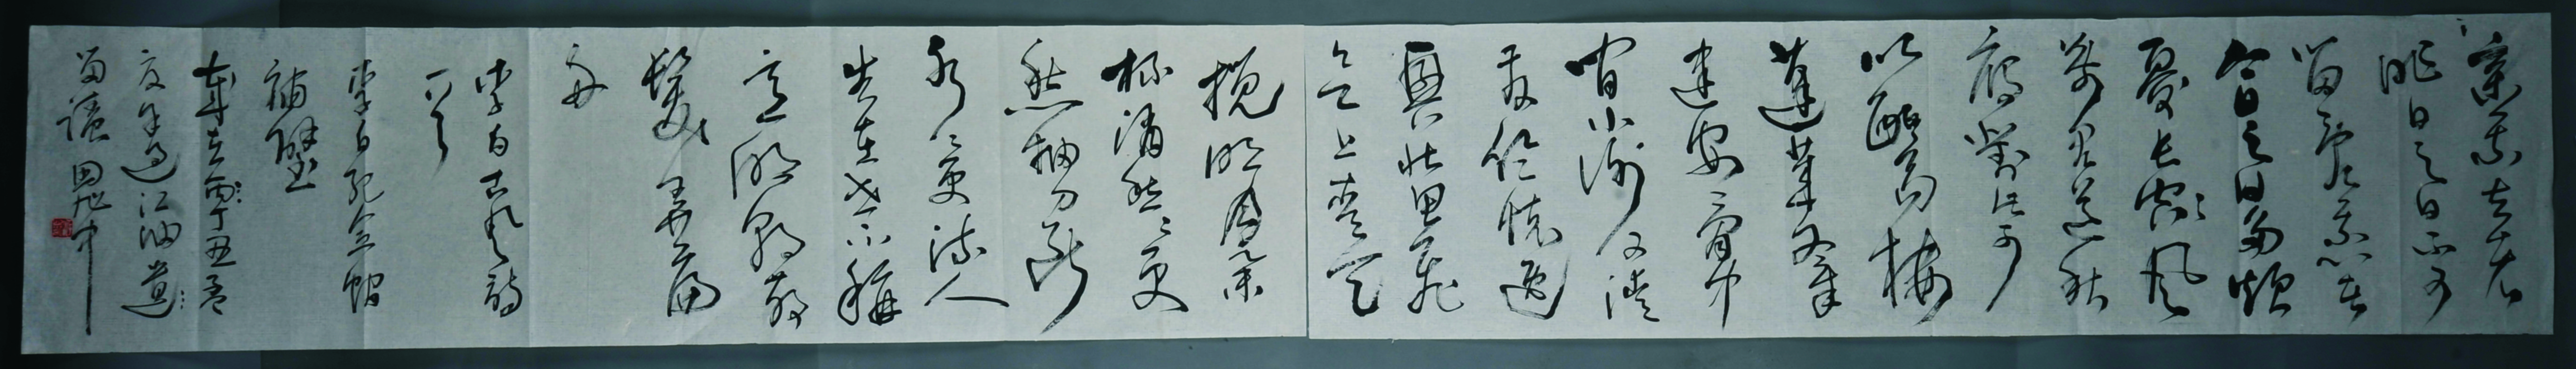 棄我去者
昨日之日不可
留亂我心者
今日之日多煩
憂長風
萬里送秋
雁對此可
以酣高樓
蓬萊文章
建安骨中
間小謝又清
發俱懷逸
興壯思飛
欲上青天
攬明月舉
杯消愁愁更
愁抽刀斷
水水更流人
生在世不稱
意明朝散
髮弄扁
舟
李白古風詩
一首
李白紀念館
補壁
歲在丁丑孟
夏過江油遵
囑 田旭中